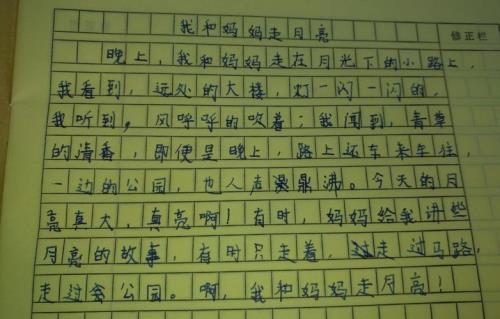 我和妈妈走月亮
修正栏
晚上，我和妈妈走在月光下的小路上，
我看到，远处的大楼，灯一闪一闪的，
我听到，风呼呼的吹着；我闻到，青草
的清香，即便是晚上，路上还车来车往，
一边的公园，也人声鼎沸。今天的月
亮真大，真亮啊！有时，妈妈给我讲些
月亮的故事，有时只走着，走过马路，
走过公园。啊，我和妈妈走月亮！